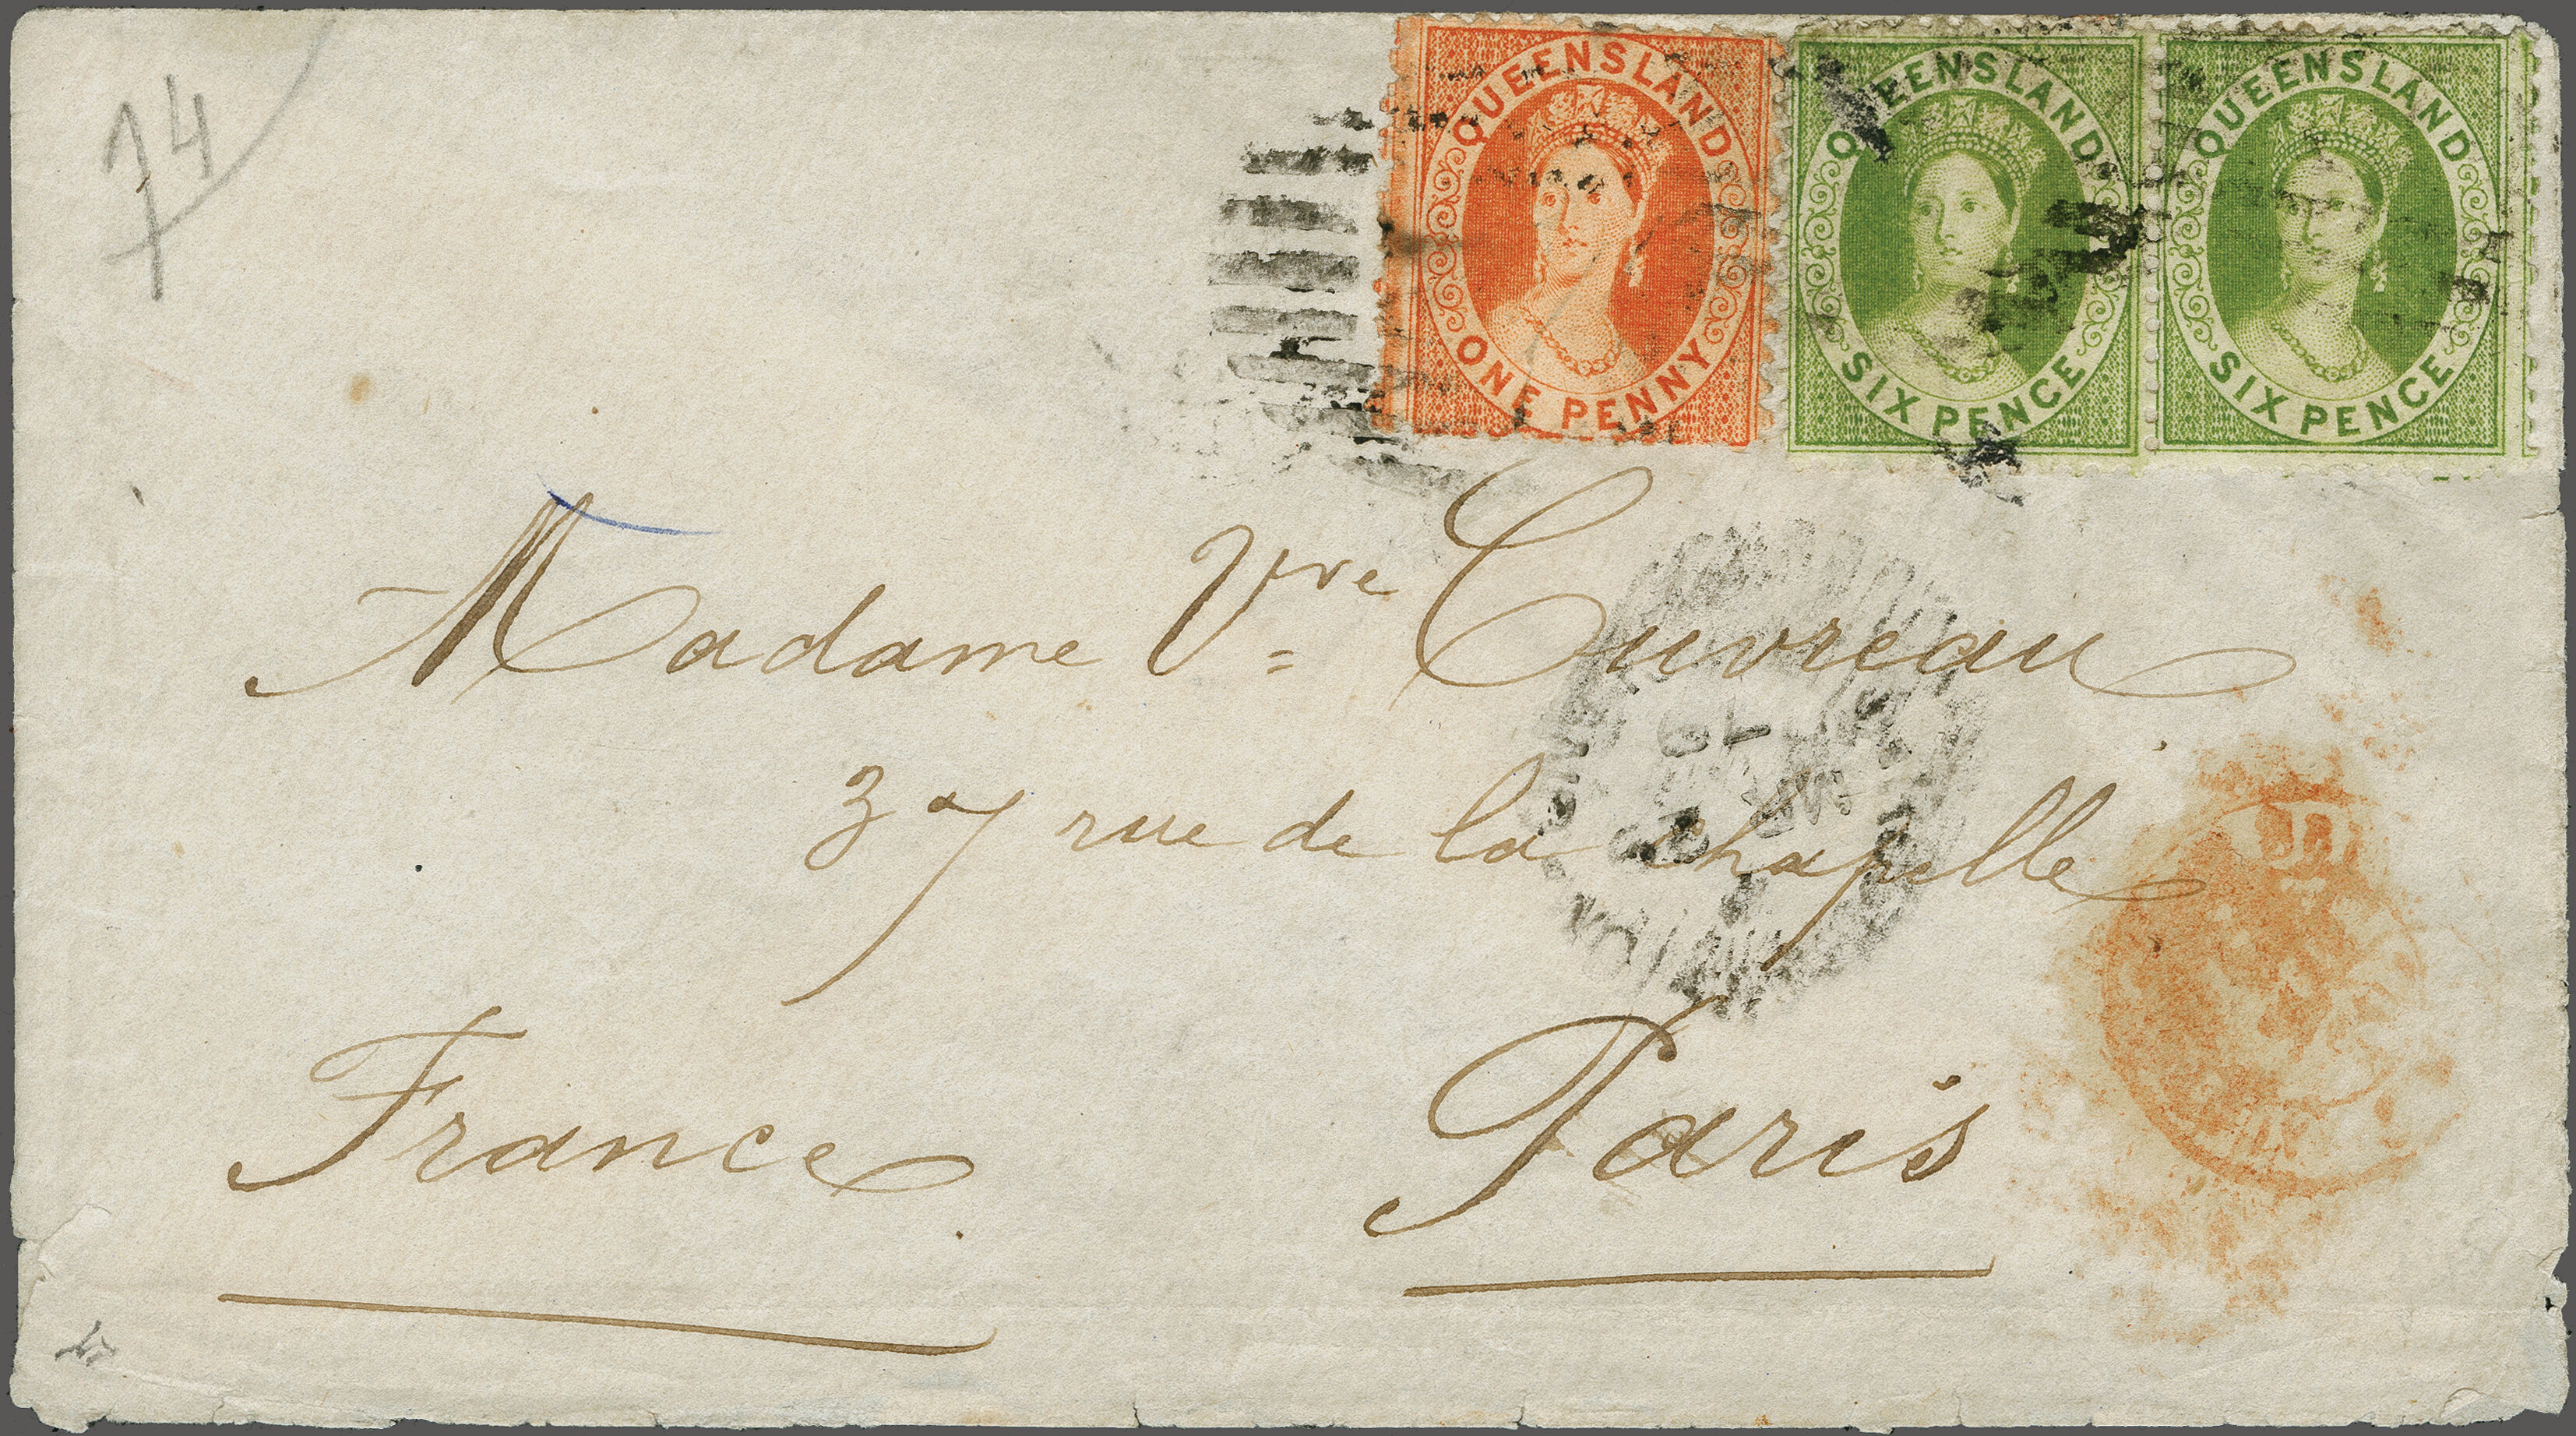 74
QUEENSLAND
ONE PENNY
QUEENSLAND
SIX PENCE
QUEENSLAND
SIX PENCE
Madame Vve Cuvreau
37 rue de la chapelle
Paris
France